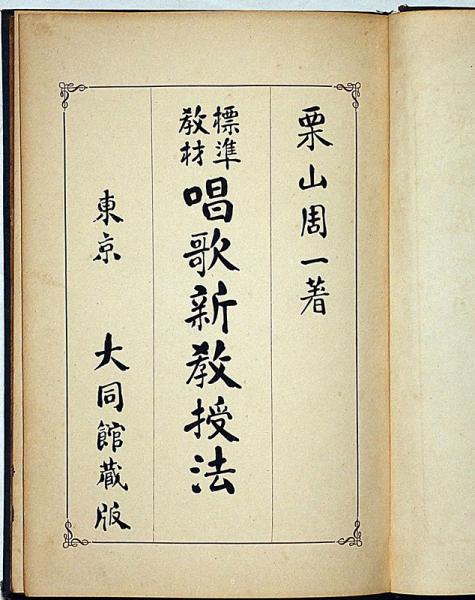 栗山周一著
標準
教材
唱歌新教授法
東京 大同館蔵版